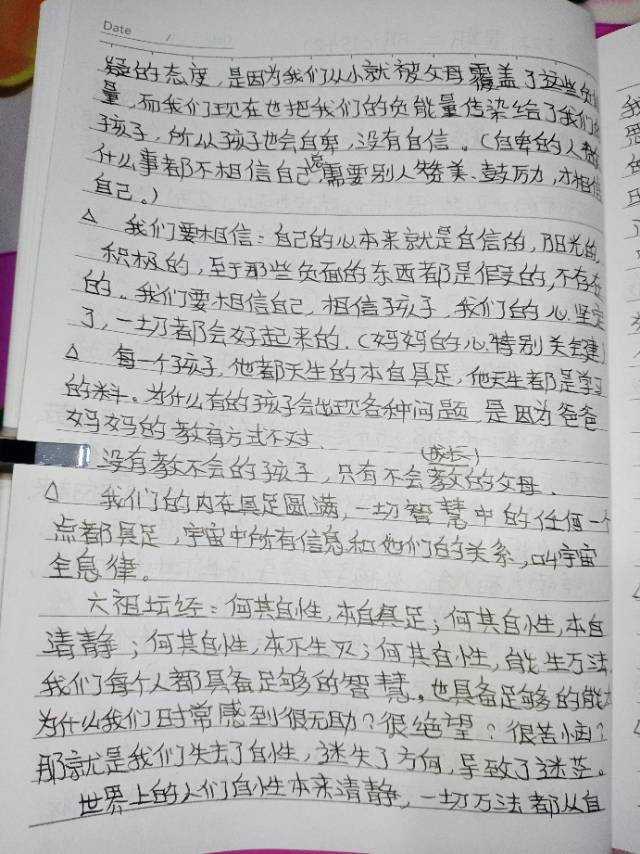 Date /
疑的态度，是因为我们从小就被父母覆盖了这些负
量，而我们现在也把我们的负能量传染给了我们
孩子，所以孩子也会自卑，没有自信。（自卑的人
什么事都不相信自己，需要别人赞美、鼓励，才相信
自己。）
△ 我们要相信：自己的心本来就是自信的，阳光的
积极的，至于那些负面的东西都是假的，不存在
的。我们要相信自己，相信孩子，我们的心坚定
了，一切都会好起来的.（妈妈的心特别关键）
△ 每一个孩子，他都天生的本自具足，他天生都是学习
的料。为什么有的孩子会出现各种问题，是因为爸爸
妈妈的教育方式不对.
（成长）
没有教不会的孩子，只有不会教的父母.
△ 我们的内在具足圆满，一切智慧中的任何一个
点都具足，宇宙中所有信息和他们的关系，叫宇宙
全息律。
六祖坛经：何其自性，本自具足；何其自性，本自
清静；何其自性，本不生灭；何其自性，能生万法
我们每个人都具备足够的智慧。也具备足够的能
为什么我们时常感到很无助？很绝望？很苦恼？
那就是我们失去了自性，迷失了方向，导致了迷茫。
世界上的人们自性本来清静，一切万法都从自